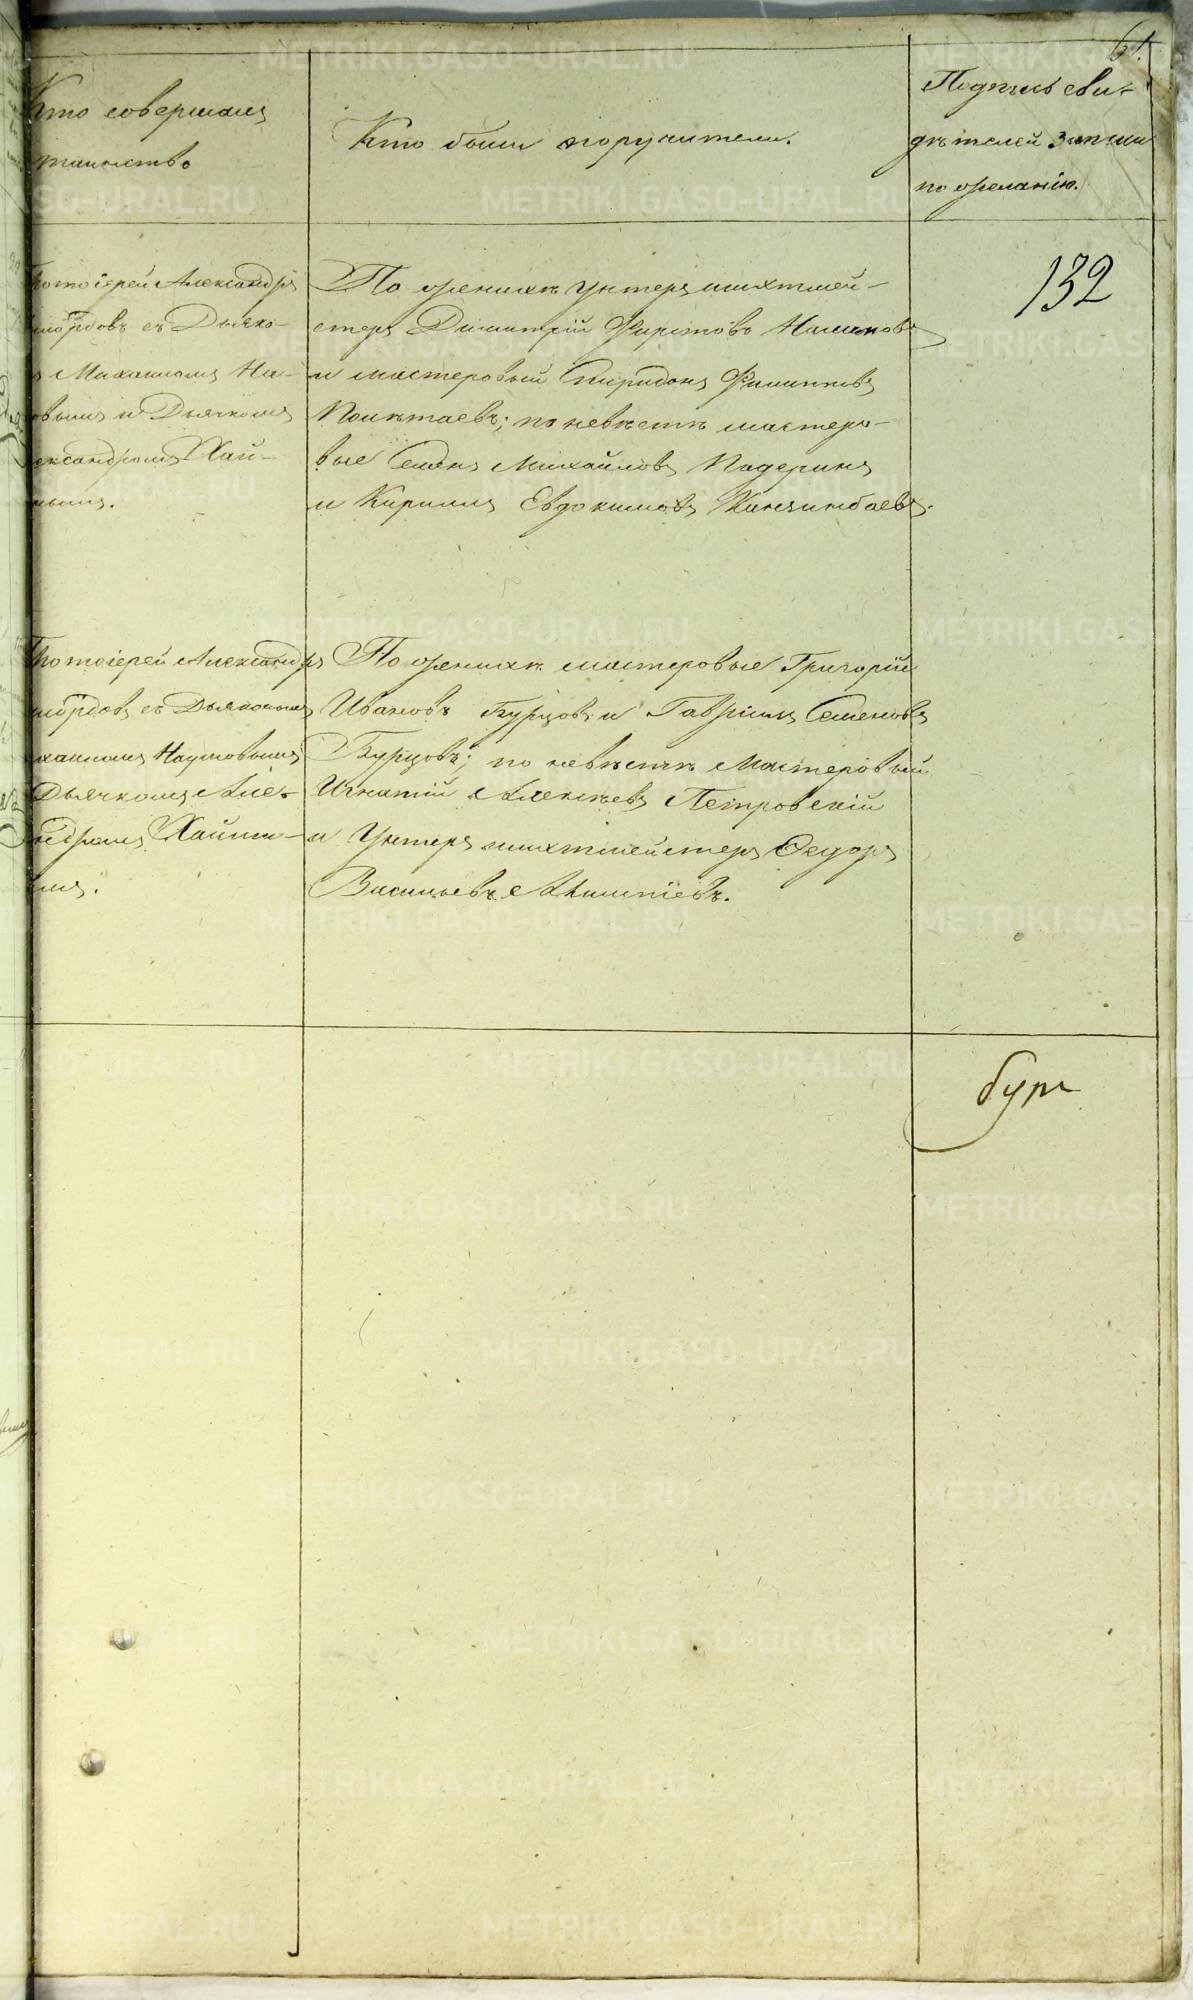 61.
Кто совершалъ
таинство
Кто были поручители.
Подпись сви-
дѣтелей записи
по желанію.
132
Протоіерей Александръ
съ Дьяко-
Михаиломъ На-
овымъ и Дьячкомъ
лександромъ Хай-
нымъ.
По женихѣ унтеръ шихтмей-
стеръ Димитрій Наимовъ
и мастеровый Спиридонъ Филиповъ
Полѣтаевъ; по невѣстѣ мастеро-
вые Семенъ Михайловъ Падеринъ
и Кирилъ Евдокимовъ
Протоіерей Александръ
съ Дьякономъ
хаиломъ Наумовымъ
Дьячкомъ Але-
ксандромъ
По женихѣ мастеровые Григорій
Ивановъ Бурцовъ и Гавріилъ Семеновъ
Бурцовъ; по невѣстѣ Мастеровый
Игнатій Алексѣевъ Петровскій
и Унтеръ шихтмейстеръ Ѳедоръ
Васильевъ
METRIKI.GASO-URAL.RU